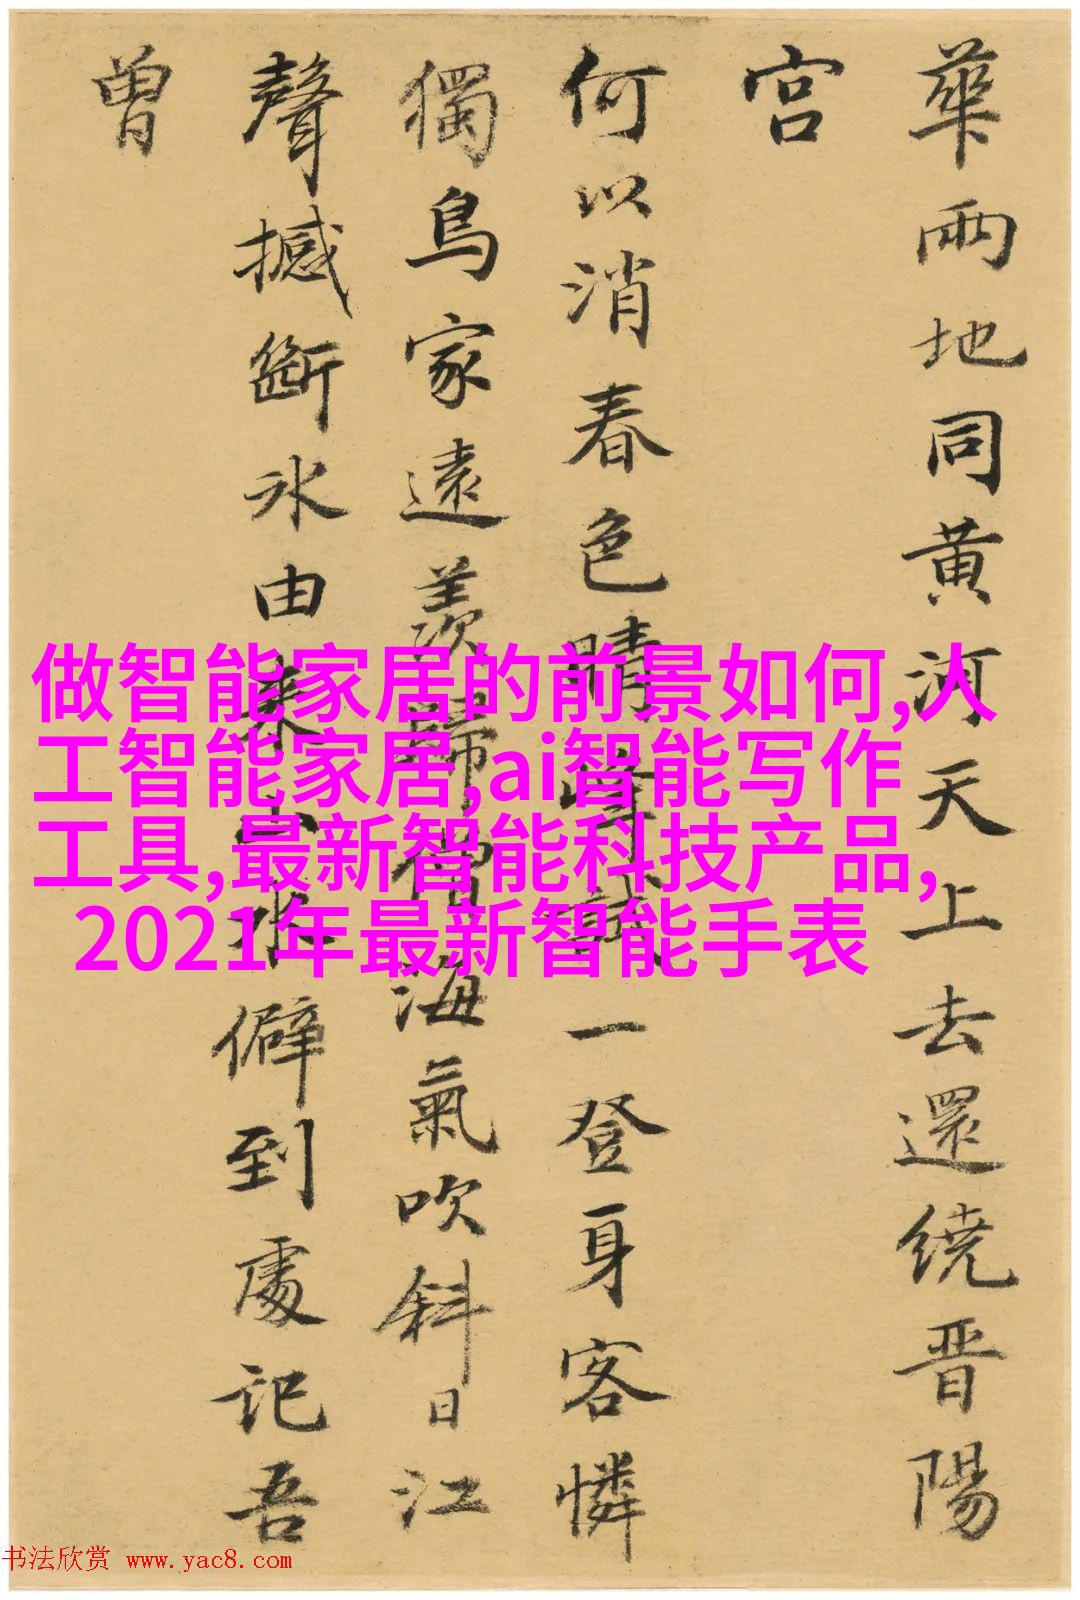 華兩地同黄河天上去還繞晋陽
宫
何以消春色晴峰就一登身客憐
獨鳥家遠羨歸僧海氣吹斜日江
聲撼斷冰由来山水僻到處记吾
曾
做智能家居的前景如何,人
工智能家居,ai智能写作
工具,最新智能科技产品,
2021年最新智能手表
书法欣赏 www.yac8.com